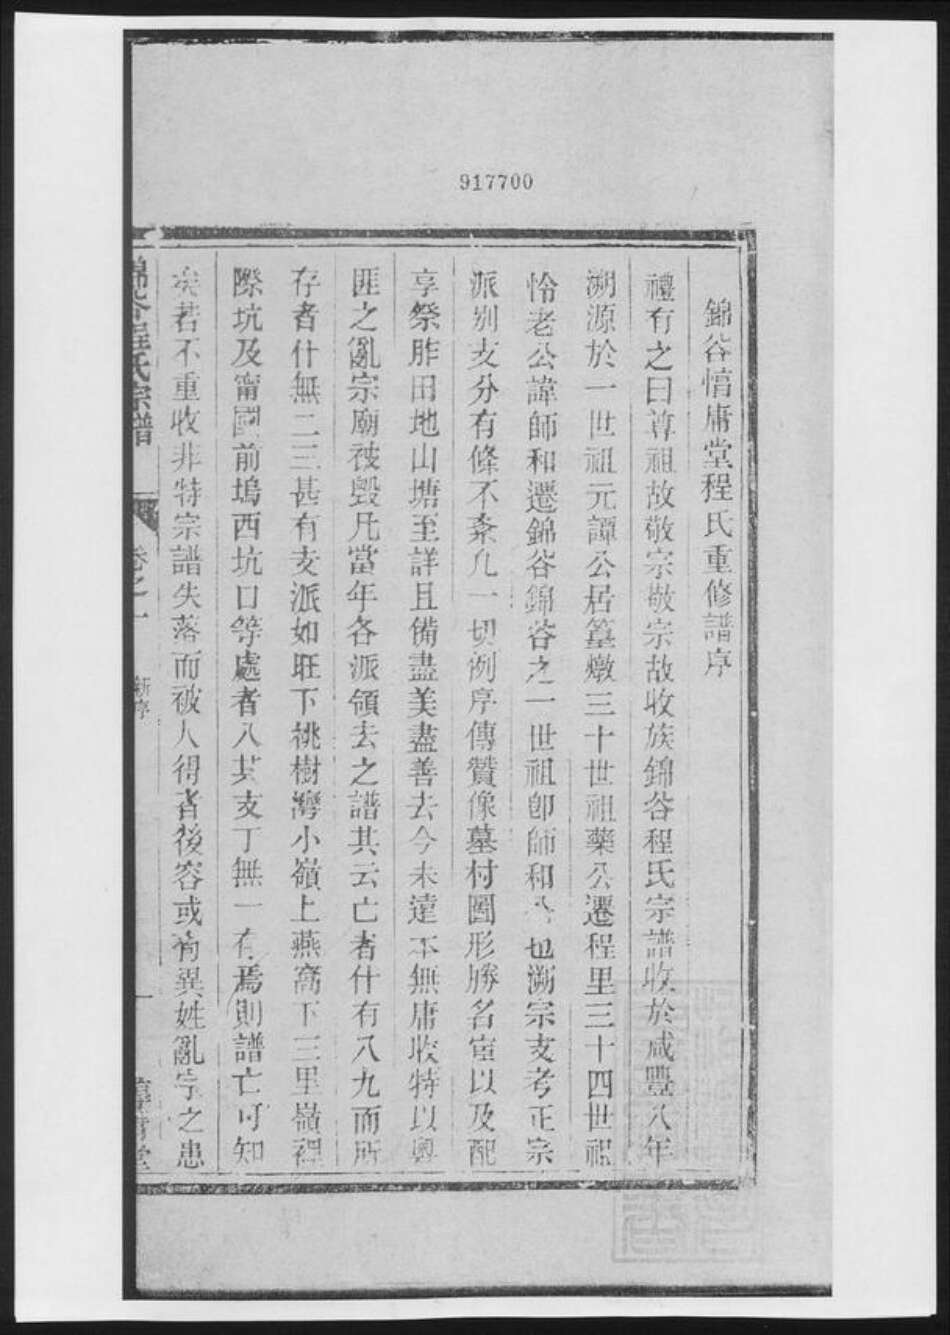 917700
錦谷惇庸堂程氏重修譜序
禮有之曰尊祖故敬宗敬宗故收族錦谷程氏宗譜收於咸豐八年
溯源於一世祖元譚公居篁墩三十世祖藥公遷程里三十四世祖
怜老公諱師和遷錦谷錦谷之一世祖卽師和公也溯宗支考正宗
派别支分有條不紊凡一切例序傳贊像墓村圖形勝名宦以及配
享祭胙田地山塘至詳且備盡美盡善去今未遠本無庸收特以粵
匪之亂宗廟被毀凡當年各派領去之譜其云亡者什有八九而所
存者什無二三甚有支派如旺下桃樹灣小嶺上燕窩下三里嶺裡
際坑及甯國前塢西坑口等處者八其支丁無一存焉則譜亡可知
矣若不重收非特宗譜失落而被人得者後容或有異姓亂宗之患
錦谷程氏宗譜
卷之一
新序
一
惇庸堂